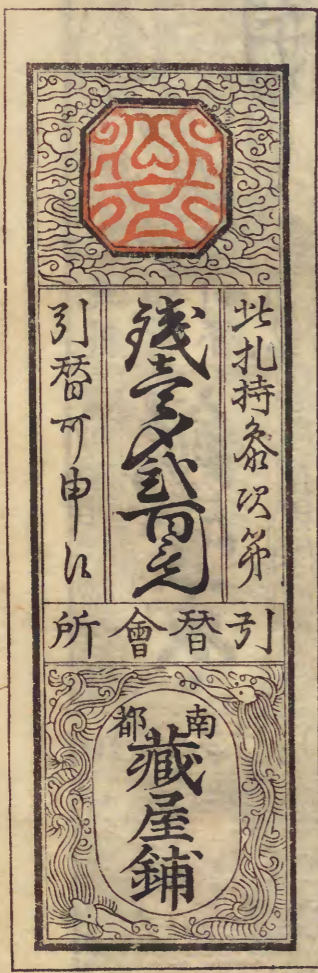 此札持参次第
銭壱〆弐百文
引替可申候
引替會所
南都
藏屋鋪